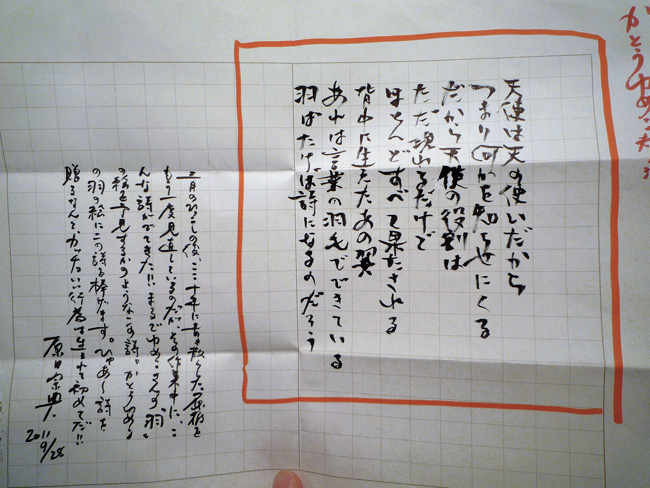 かとうゆめこ
天使は天の使いだから
つまり何かを知らせにくる
だから天使の役割は
ただ現れるだけで
ほとんどすべて果たされる
背中に生えたあの翼
あれは言葉の羽毛でできている
羽ばたけば詩になるのだろう
三月のひっこしの後、ここ十年に書き散らした原稿を
もう一度見直しているのだが、その作業中に、こ
んな詩がでてきた!! まるでゆめこさんの羽
の絵を予見するかのようなこの詩、かとうゆめこ
の羽の絵にこの詩を捧げます。ひゃあ〜詩を
贈るなんてカッチョいい行為は生まれて初めてだ!!
原田宗典
2011
9/28